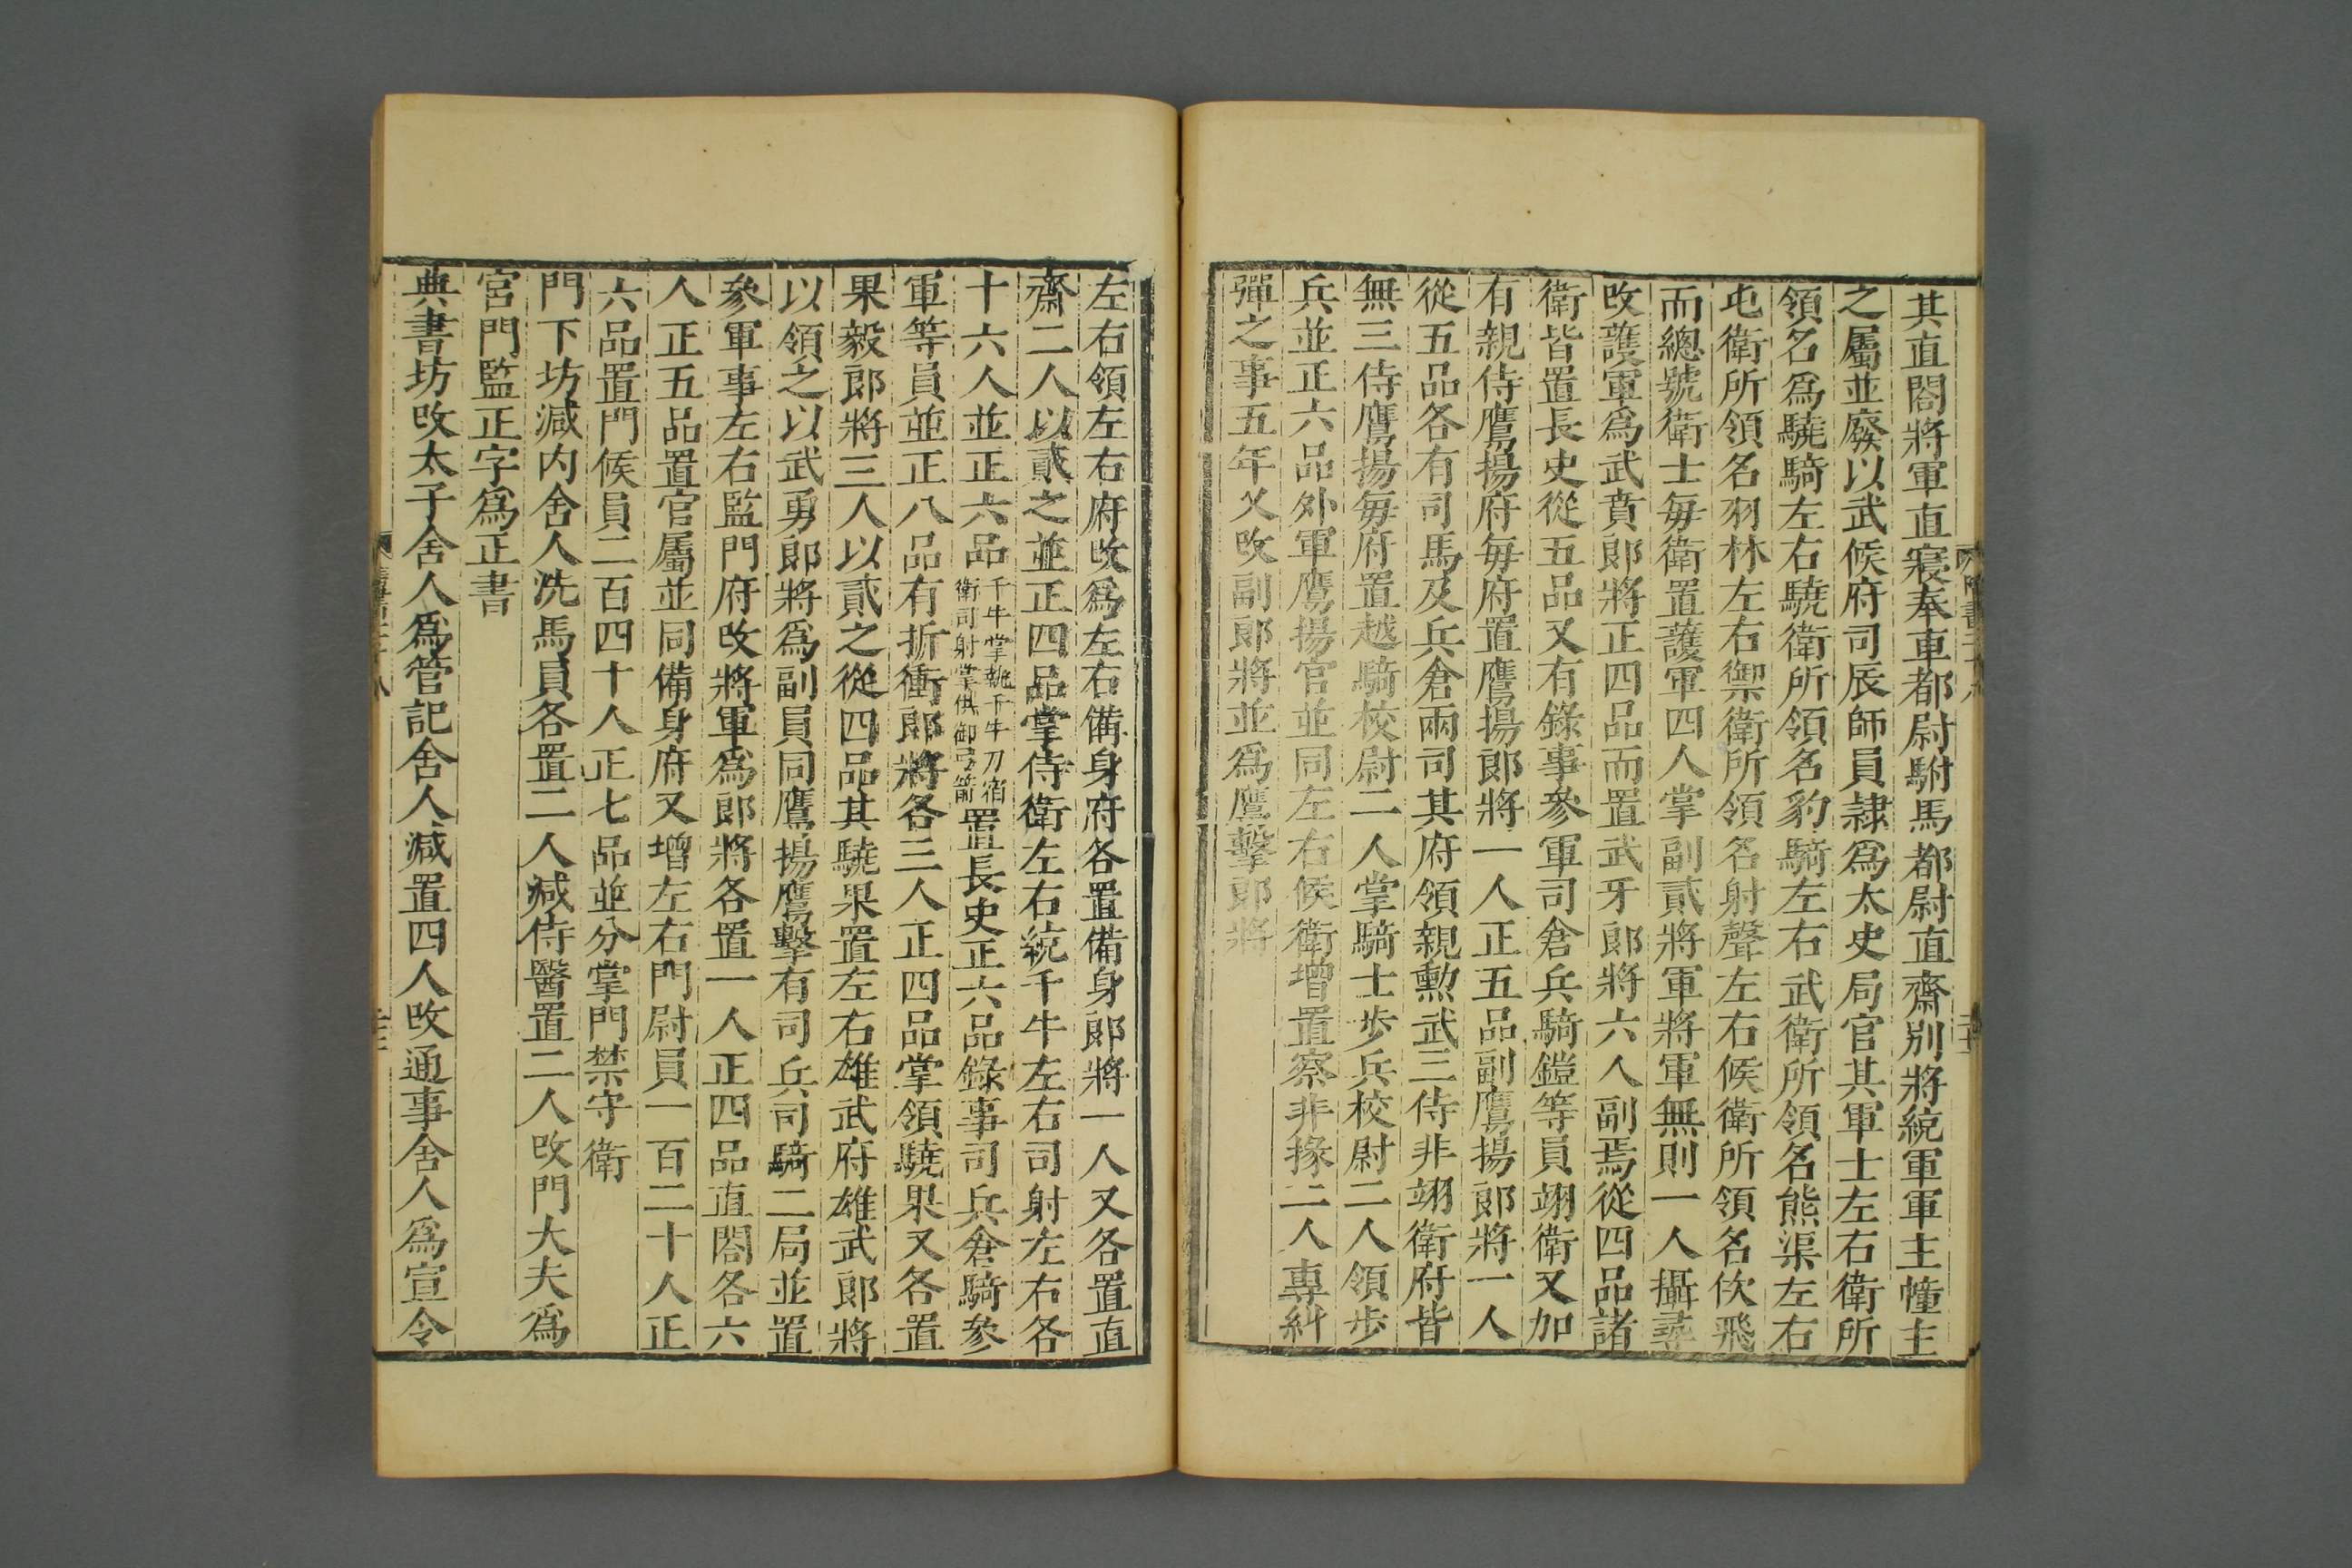 其直閤將軍直寢奉車都尉駙馬都尉直齋別將統軍軍主幢主
之屬並廢以武候府司辰師員隷爲太史局官其軍士左右衛所
領名爲驍騎左右驍衛所領名豹騎左右武衛所領名熊渠左右
屯衛所領名羽林左右禦衛所領名射聲左右候衛所領名佽飛
而總號衛士每衛置護軍四人掌副貳將軍將軍無則一人攝尋
改護軍爲武賁郎將正四品而置武牙郎將六人副焉從四品諸
衛皆置長史從五品又有錄事參軍司倉兵騎鎧等員翊衛又加
有親侍鷹揚府每府置鷹揚郎將一人正五品副鷹揚郎將一人
從五品各有司馬及兵倉兩司其府領親勲武三侍非翊衛府皆
無三侍鷹揚每府置越騎校尉二人掌騎士步兵校尉二人領步
兵並正六品外軍鷹揚官並同左右候衛增置察非掾二人專糾
彈之事五年又改副郎將並爲鷹擊郎將
左右領左右府改爲左右備身府各置備身郎將一人又各置直
齋二人以貳之並正四品掌侍衛左右統千牛左右司射左右各
十六人並正六品千牛掌執千牛刀宿衛司射掌供御弓箭置長史正六品錄事司兵倉騎參
軍等員並正八品有折衝郎將各三人正四品掌領驍果又各置
果毅郎將三人以貳之從四品其驍果置左右雄武府雄武郎將
以領之以武勇郎將爲副員同鷹揚鷹擊有司兵司騎二局並置
參軍事左右監門府改將軍爲郎將各置一人正四品直閤各六
人正五品置官屬並同備身府又增左右門尉員一百二十人正
六品置門候員二百四十人正七品並分掌門禁守衛
門下坊減內舍人洗馬員各置二人減侍醫置二人改門大夫爲
宮門監正字爲正書
典書坊改太子舍人爲管記舍人減置四人改通事舍人爲宣令